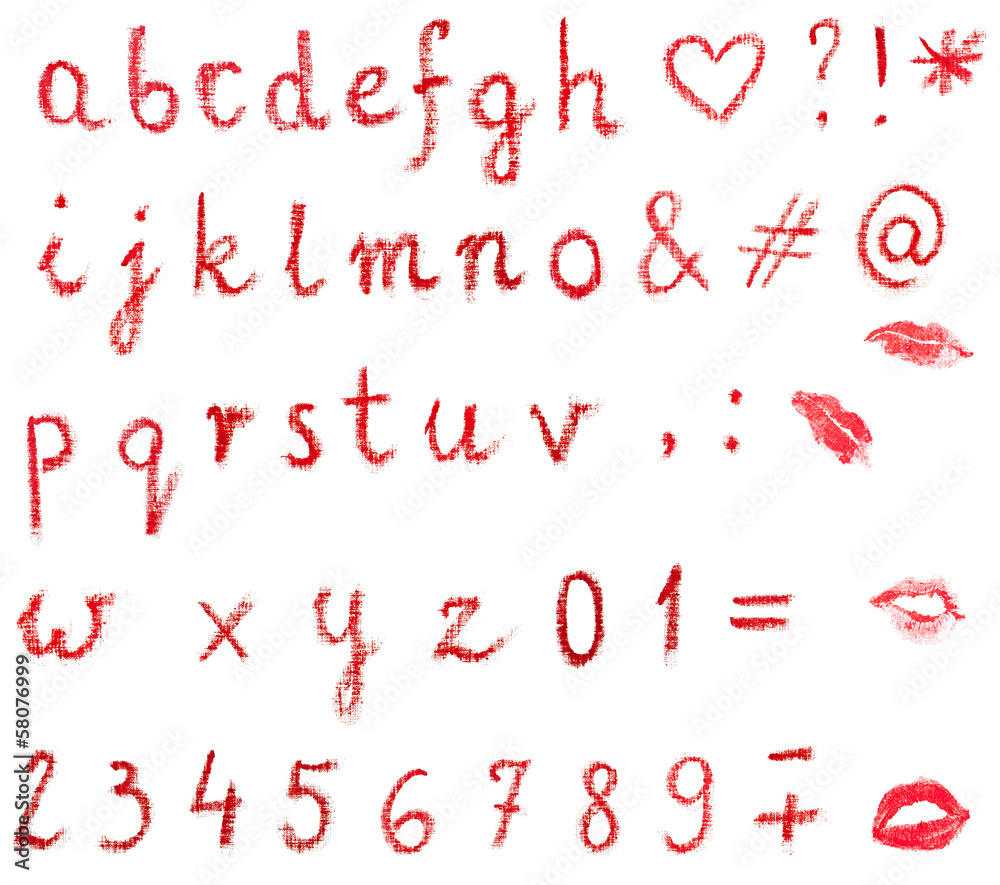 abcdefgh ♡ ? ! *
ijklmno & # @
pqrstuv , :
wxyz01 =
23456789 - +
Adobe Stock | #58076999